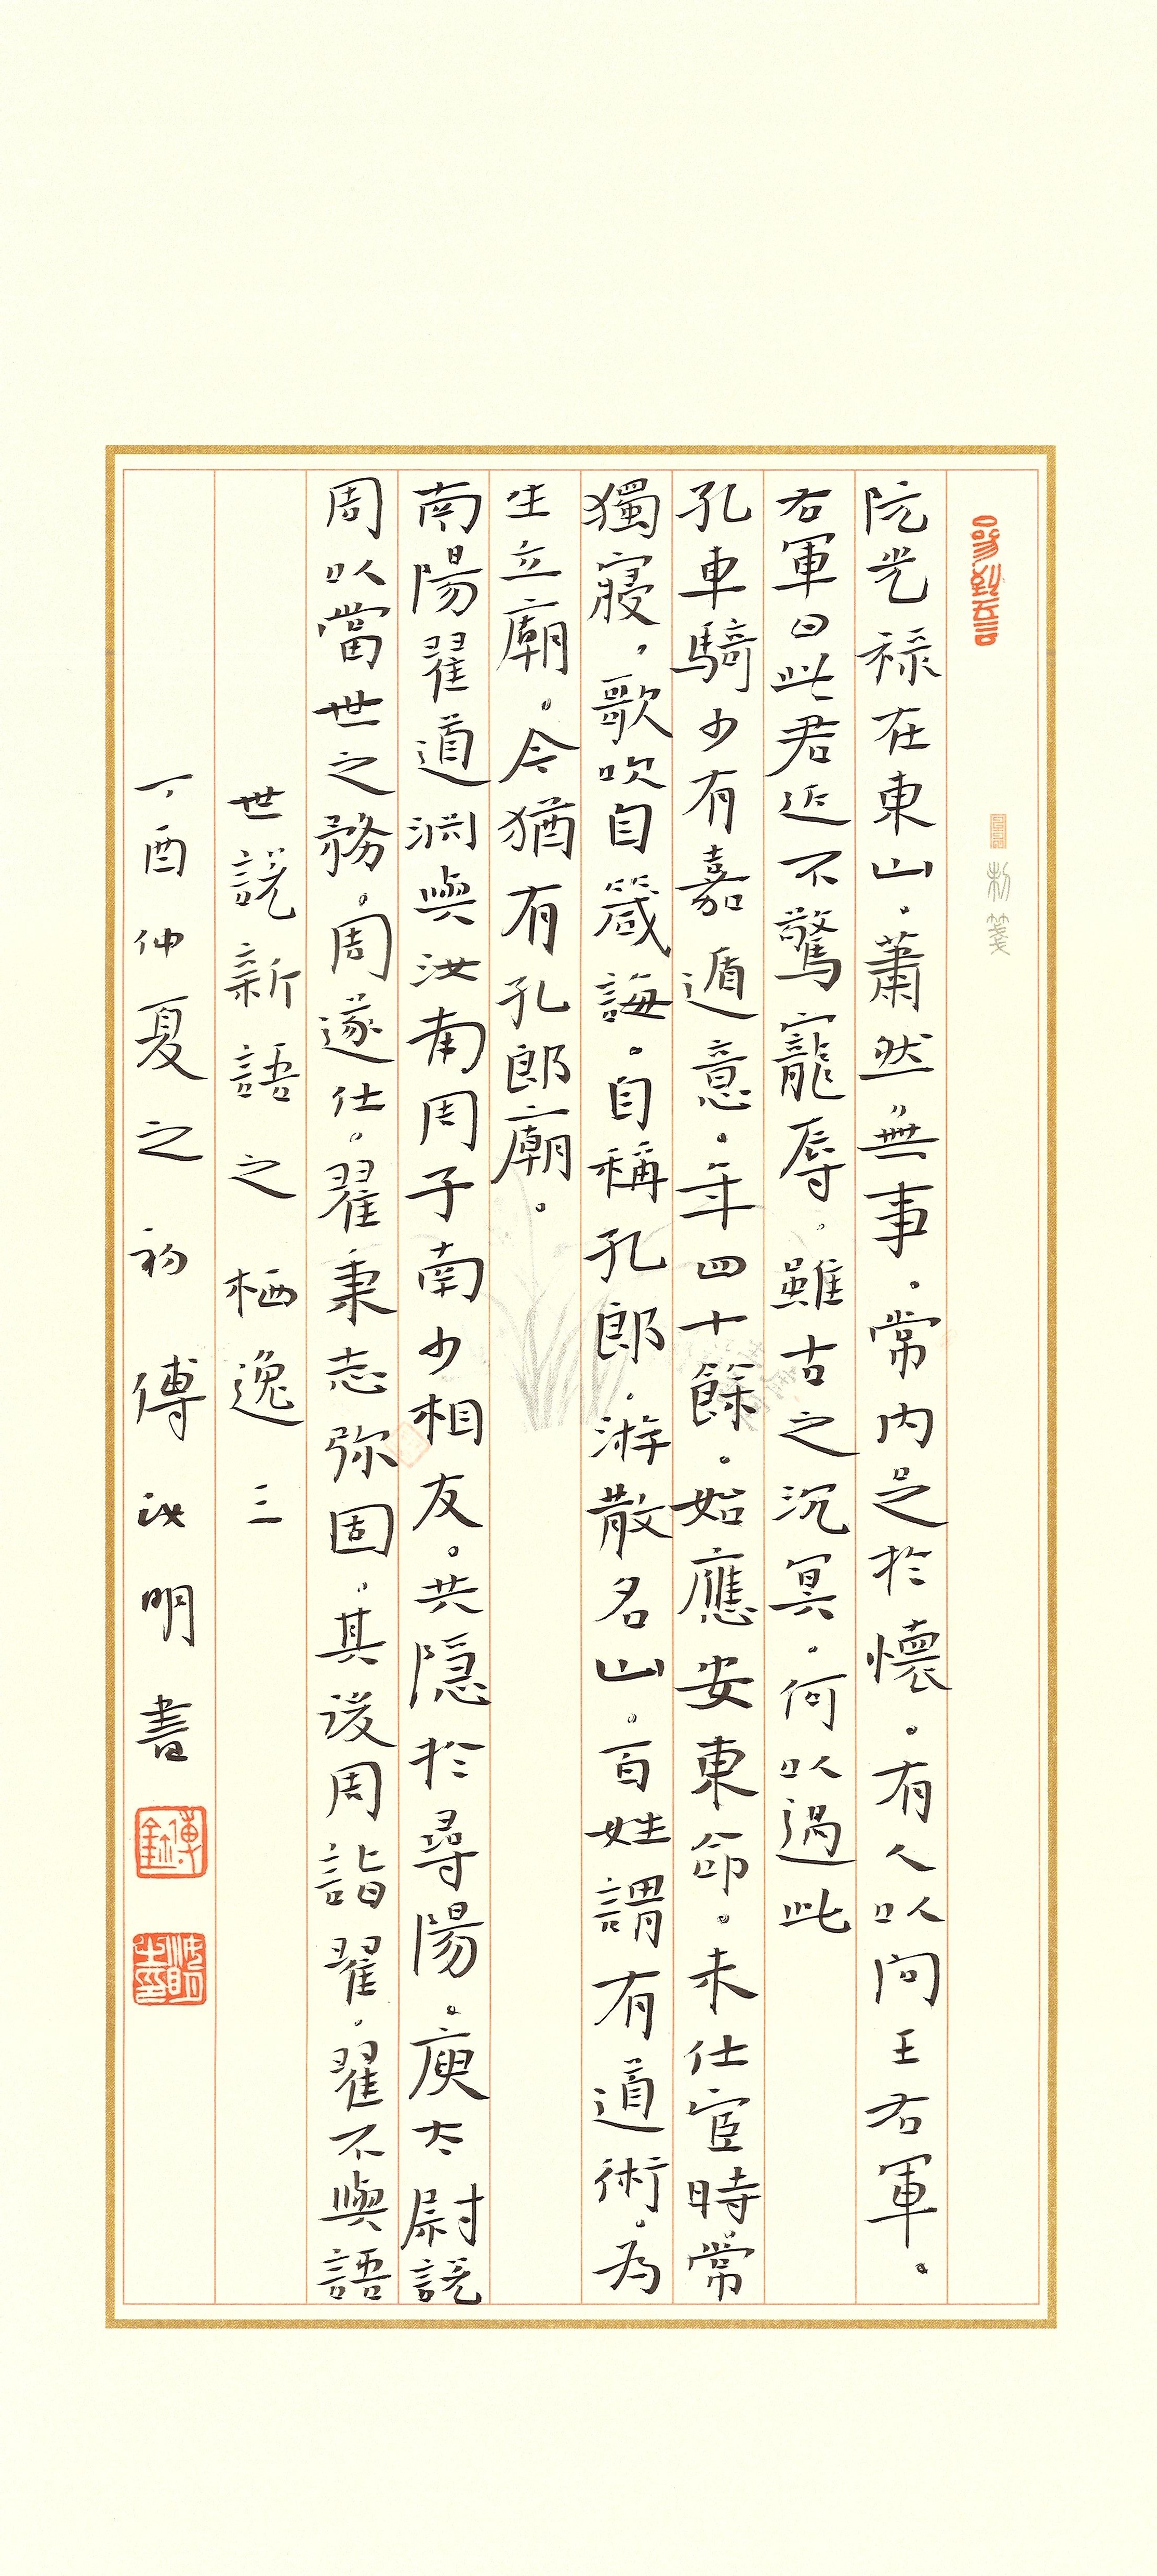 阮光祿在東山。蕭然無事。常內足於懷。有人以问王右軍。
右軍曰此君近不驚寵辱。雖古之沉冥。何以過此
孔車騎少有嘉遁意。年四十餘。始應安東命。未仕宦時常
獨寢，歌吹自箴誨。自稱孔郎。游散名山。百姓謂有道術。为
生立廟。今猶有孔郎廟。
南陽翟道渊與汝南周子南少相友。共隱於尋陽。庾太尉説
周以當世之務。周遂仕。翟秉志弥固。其後周詣翟。翟不與語
世説新語之栖逸三
丁酉仲夏之初傅汝明書